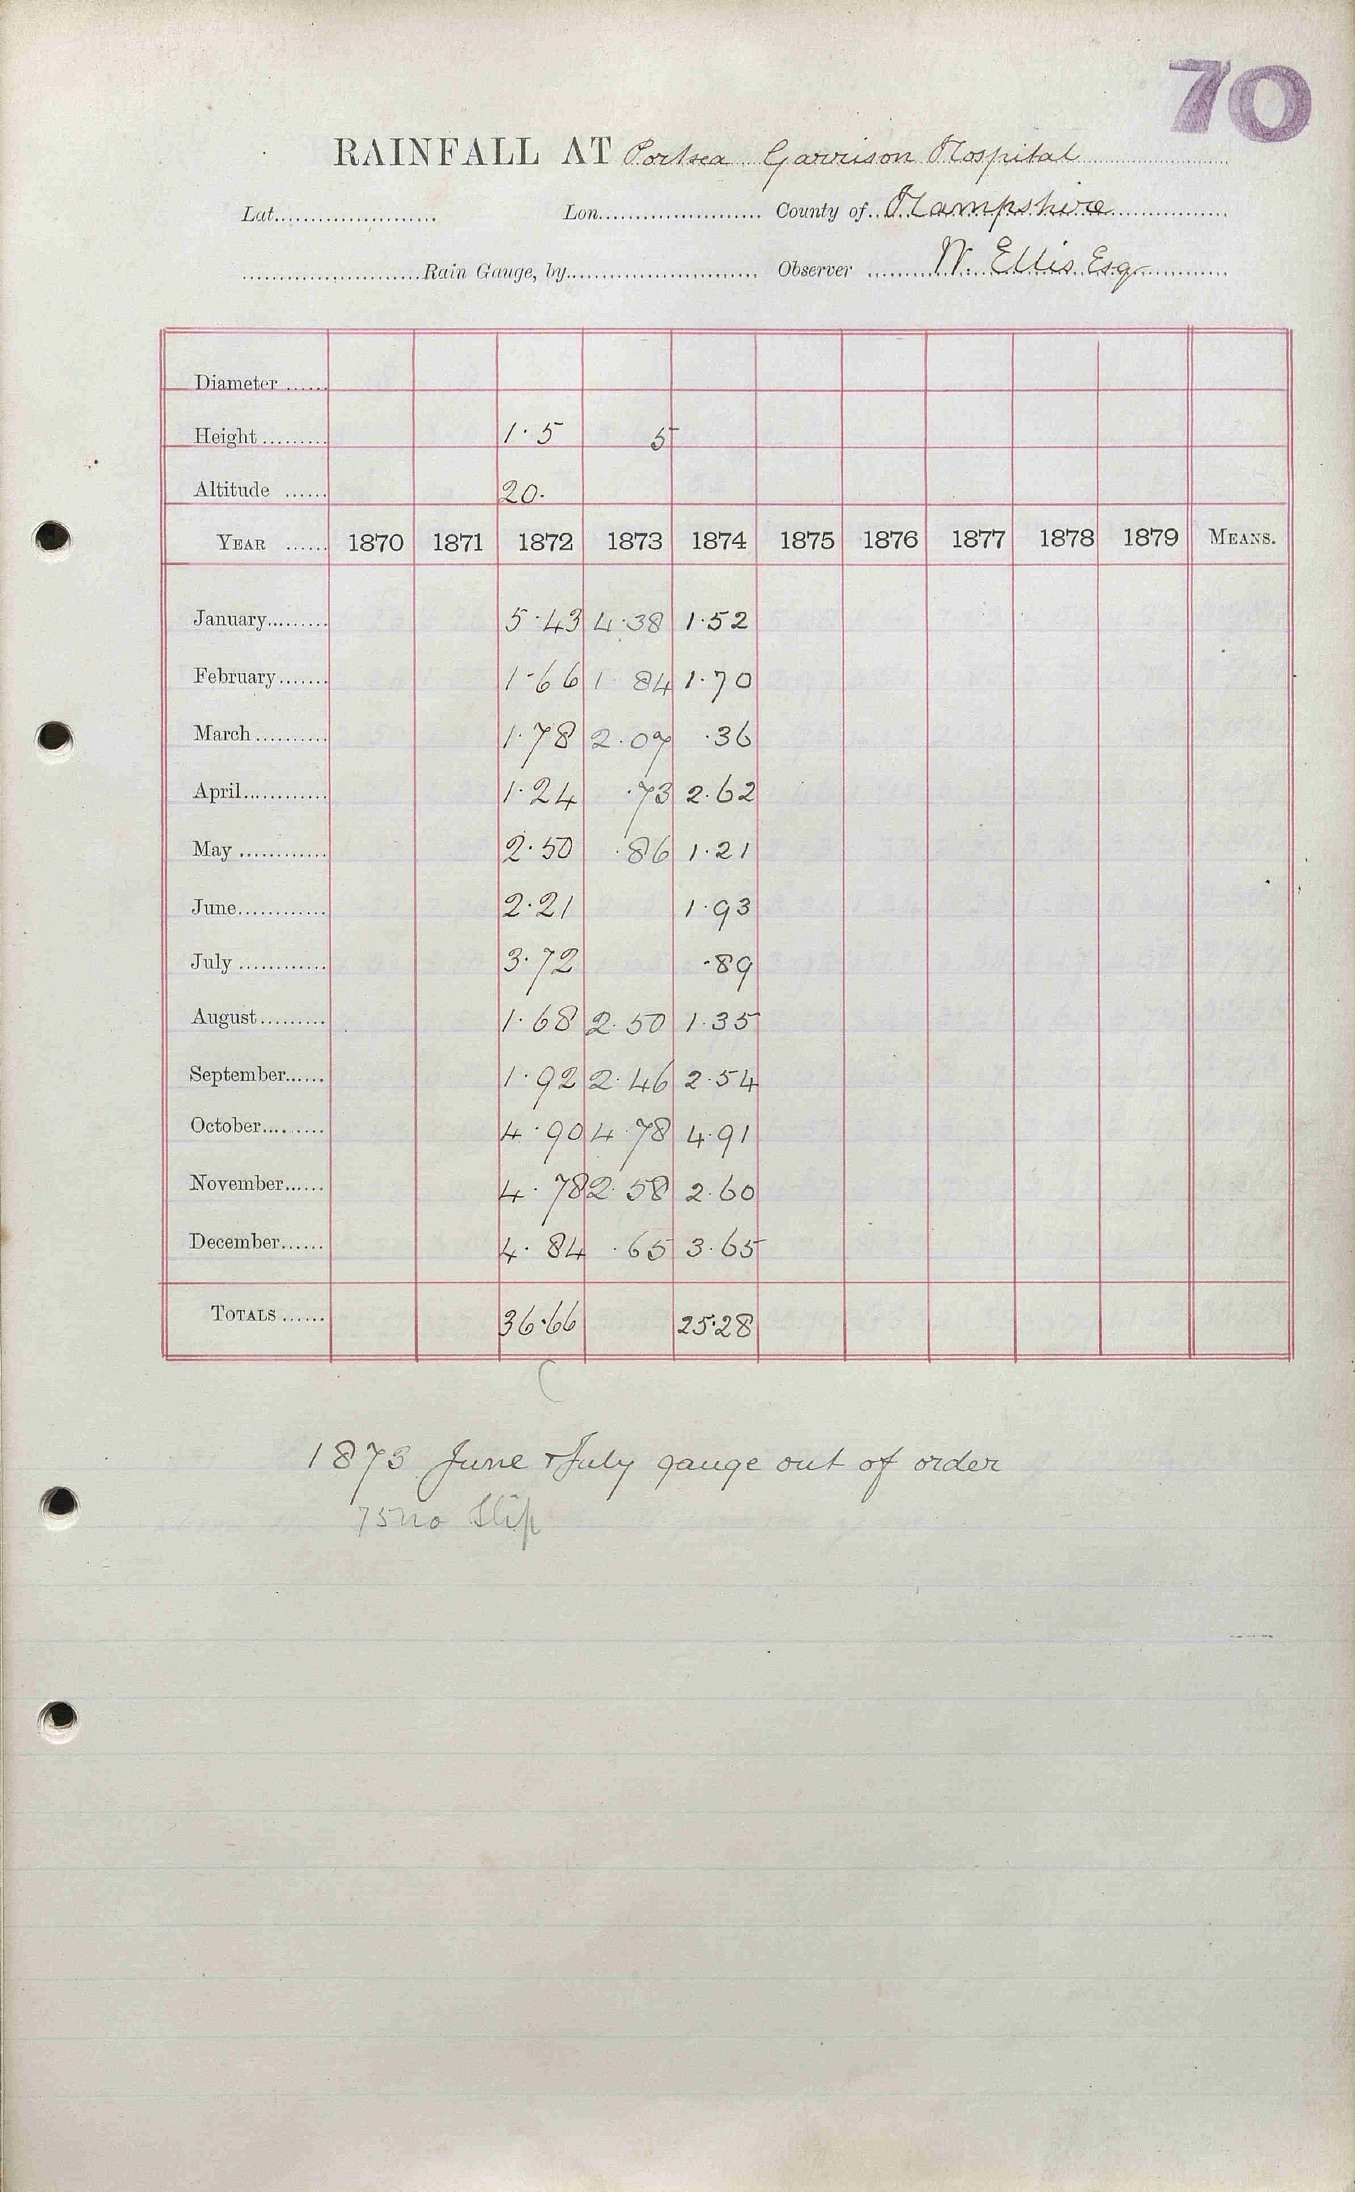 70
RAINFALL AT Portsea Garrison Hospital
Lat. Lon. County of Hampshire
Rain Gauge, by Observer W. Ellis Esq
Diameter
Height 1.5 5
Altitude 20.
YEAR 1870 1871 1872 1873 1874 1875 1876 1877 1878 1879 MEANS.
January 5.43 4.38 1.52
February 1.66 1.84 1.70
March 1.78 2.07 .36
April 1.24 .73 2.62
May 2.50 .86 1.21
June 2.21 1.93
July 3.72 .89
August 1.68 2.50 1.35
September 1.92 2.46 2.54
October 4.90 4.78 4.91
November 4.78 2.58 2.60
December 4.84 .65 3.65
TOTALS 36.66 25.28
1873 June & July gauge out of order
75 no Slip